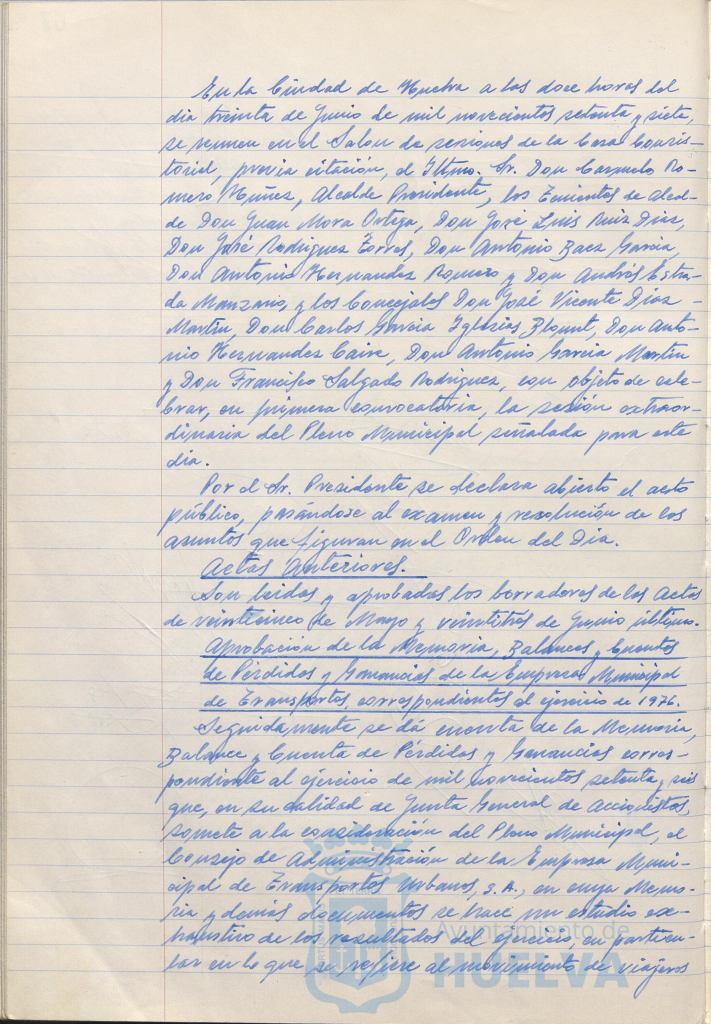 En la Ciudad de Huelva a las doce horas del
dia treinta de Junio de mil novecientos setenta y siete,
se reunen en el Salon de sesiones de la Casa Consis-
torial, previa citación, el Iltmo. Sr. Don Carmelo Ro-
mero Núñez, Alcalde Presidente, los Tenientes de Alcal-
de Don Juan Mora Ortega, Don José Luis Ruiz Diaz,
Don José Rodriguez Torres, Don Antonio Baez Garcia,
Don Antonio Hernandez Romero y Don Andrés Estra-
da Manzano, y los Concejales Don José Vicente Dias
Martin, Don Carlos Garcia Iglesias Blount, Don Anto-
nio Hernandez Caire, Don Antonio Garcia Martin
y Don Francisco Salgado Rodriguez, con objeto de cele-
brar, en primera convocatoria, la sesión extraor-
dinaria del Pleno Municipal señalada para este
dia.
Por el Sr. Presidente se declara abierto el acto
público, pasándose al examen y resolución de los
asuntos que figuran en el Orden del Dia.
Actas anteriores.
Son leidos y aprobados los borradores de las Actas
de veinticinco de Mayo y veintitres de Junio último.
Aprobación de la Memoria, Balances y Cuentas
de Pérdidas y Ganancias de la Empresa Municipal
de Transportes, correspondientes al ejercicio de 1976.
Seguidamente se dá cuenta de la Memoria,
Balance y Cuenta de Pérdidas y Ganancias corres-
pondiente al ejercicio de mil novecientos setenta y seis
que, en su calidad de Junta General de Accionistas,
somete a la consideración del Pleno Municipal, el
Consejo de Administración de la Empresa Muni-
cipal de Transportes Urbanos, S.A., en cuya Memo-
ria y demás documentos se hace un estudio ex-
haustivo de los resultados del ejercicio, en particu-
lar en lo que se refiere al movimiento de viajeros
Ayuntamiento de
HUELVA